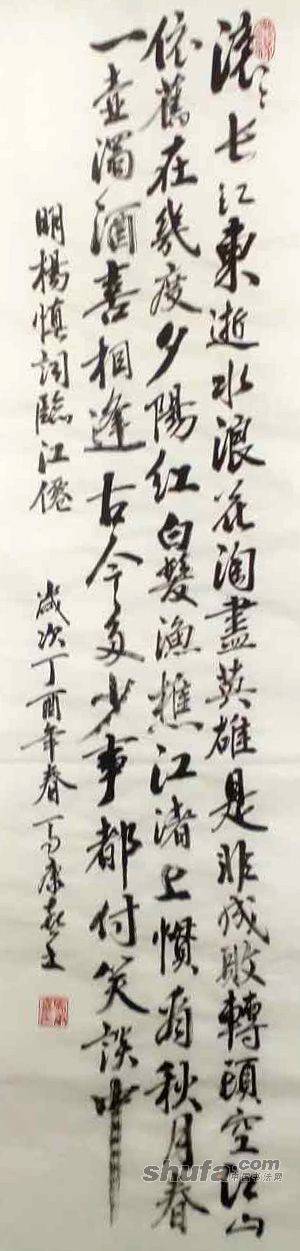 滚〻长江東逝水浪花淘盡英雄是非成敗轉頭空江山
依舊在幾度夕陽紅白髮漁樵江渚上慣看秋月春
一壺濁酒喜相逢古今多少事都付笑談中
明楊慎詞臨江僊 歲次丁酉年春
shufa.com
中国书法网